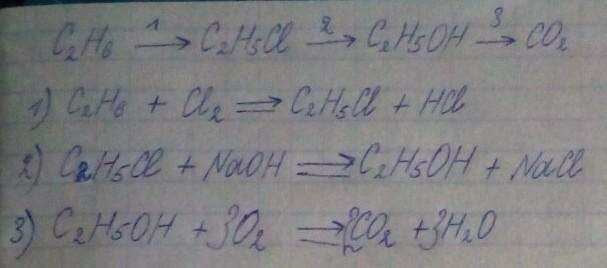 C₂H₆ →¹ C₂H₅Cl →² C₂H₅OH →³ CO₂
1) C₂H₆ + Cl₂ ⇒ C₂H₅Cl + HCl
2) C₂H₅Cl + NaOH ⇒ C₂H₅OH + NaCl
3) C₂H₅OH + 3O₂ ⇒ 2CO₂ + 3H₂O